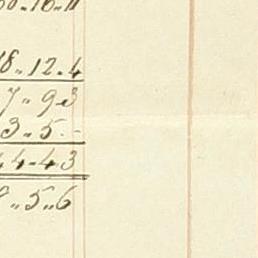 0.16.11
8.12.4
7.9.3
3.5.-
4.4.3
9.5.6